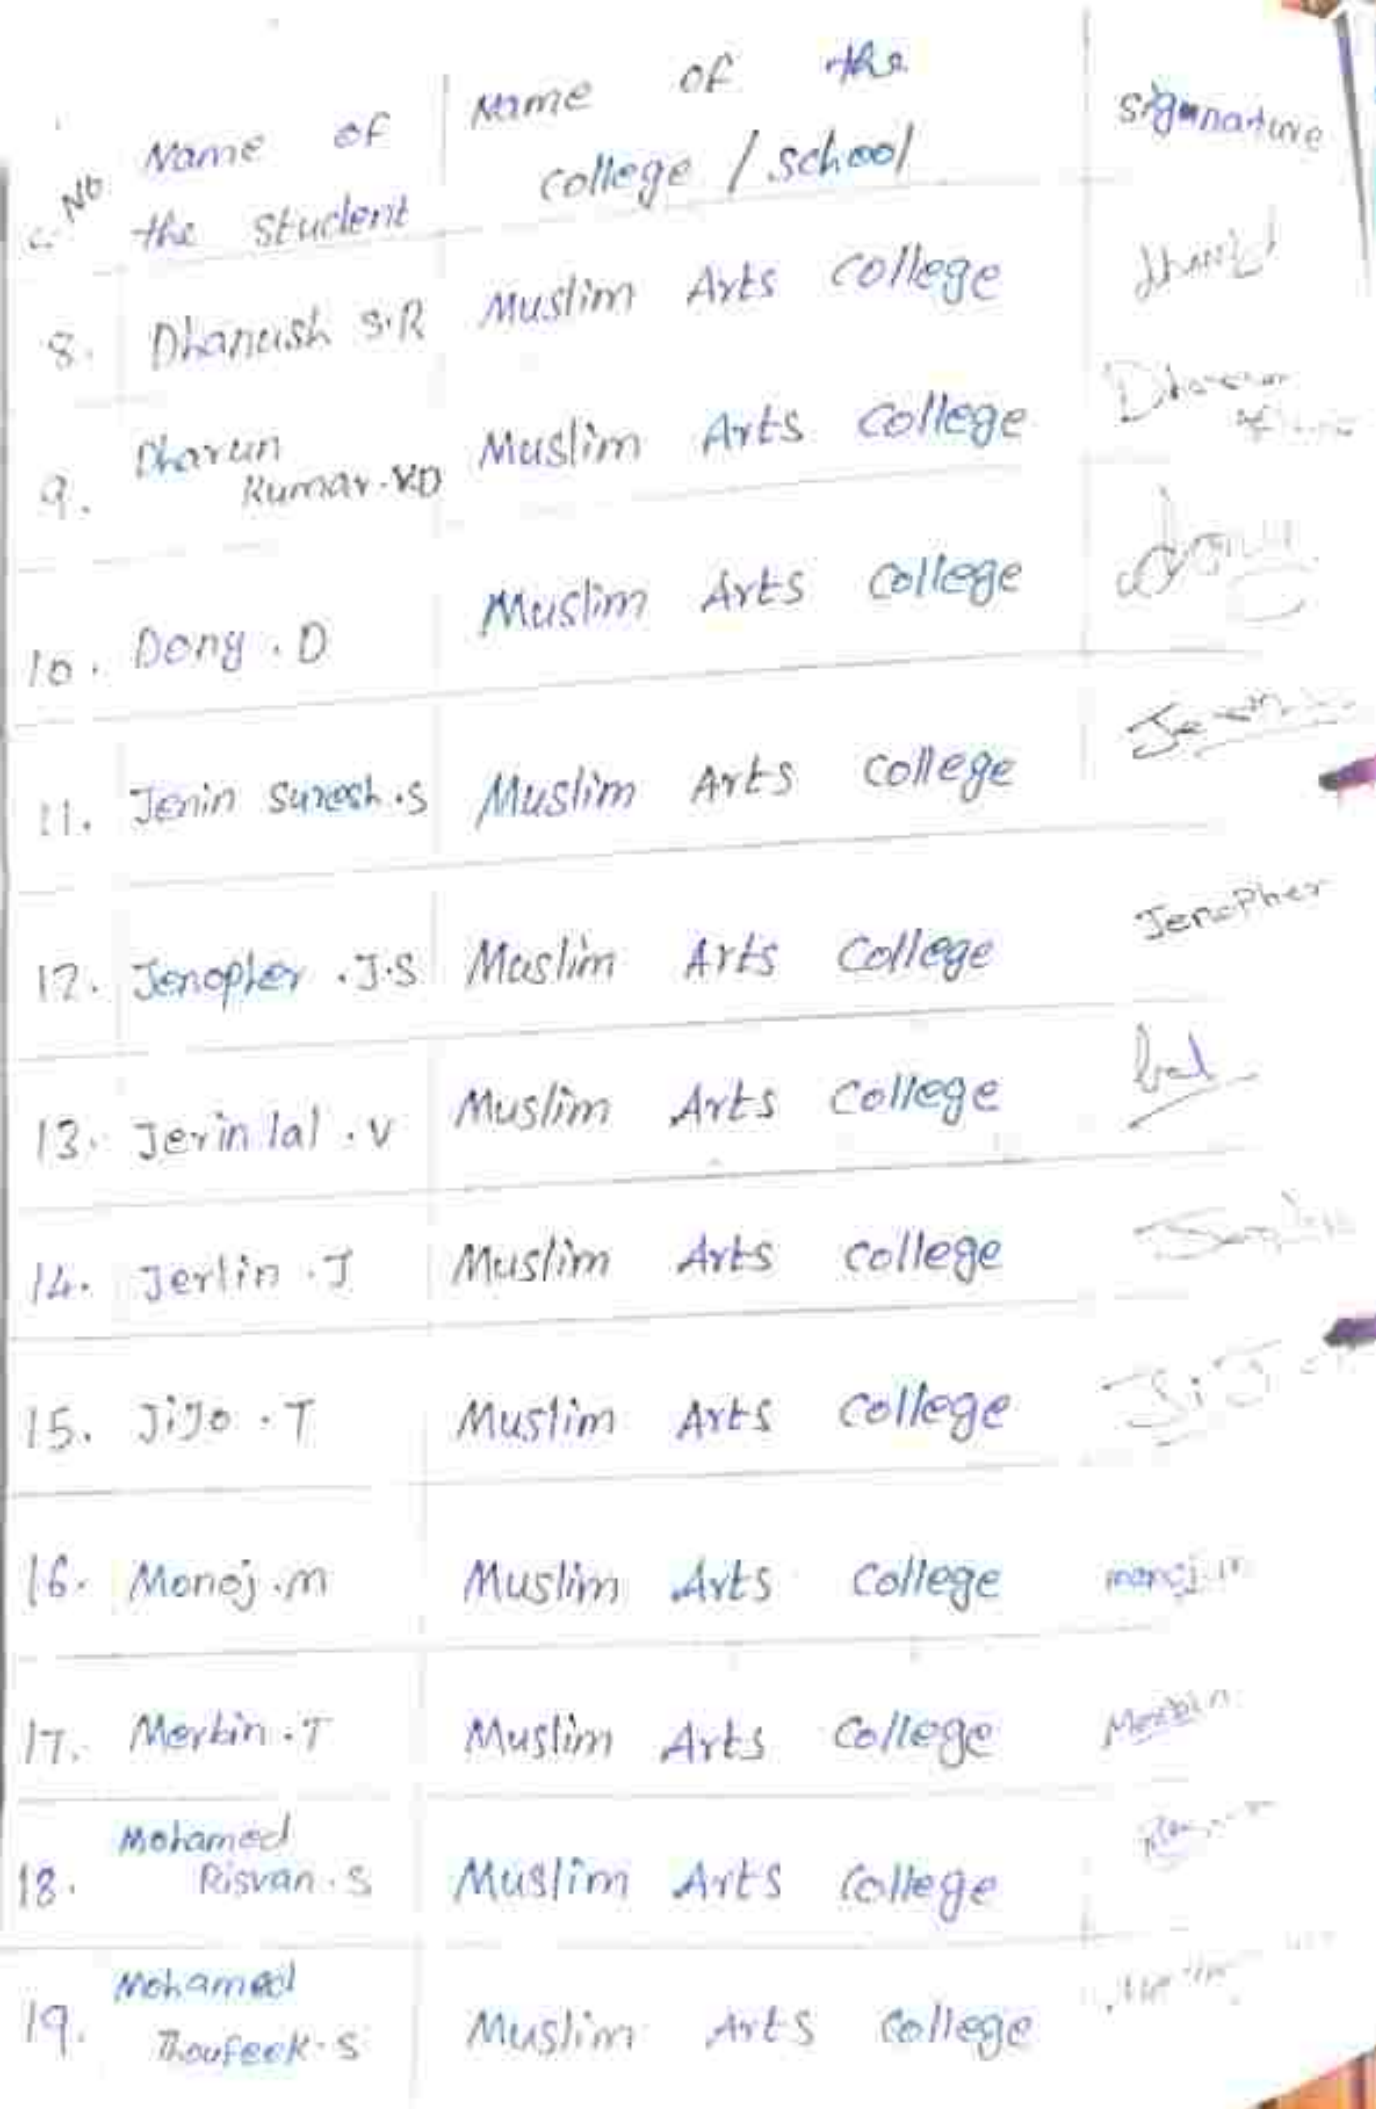 No Name of the Student Name of the college / school Signature
8. Dhanush S.R Muslim Arts College
9. Dharun Kumar.V.D Muslim Arts College
10. Dony . D Muslim Arts College
11. Jenin Suresh .S Muslim Arts College
12. Jenopher .J.S Muslim Arts College Jenopher
13. Jerin lal . V Muslim Arts College lal
14. Jerlin .J Muslim Arts College
15. JiJo . T Muslim Arts College
16. Monoj .M Muslim Arts College manoj.m
17. Merbin .T Muslim Arts College Merbin
18. Mohamed Risvan . S Muslim Arts College
19. Mohamed Thoufeek . S Muslim Arts College